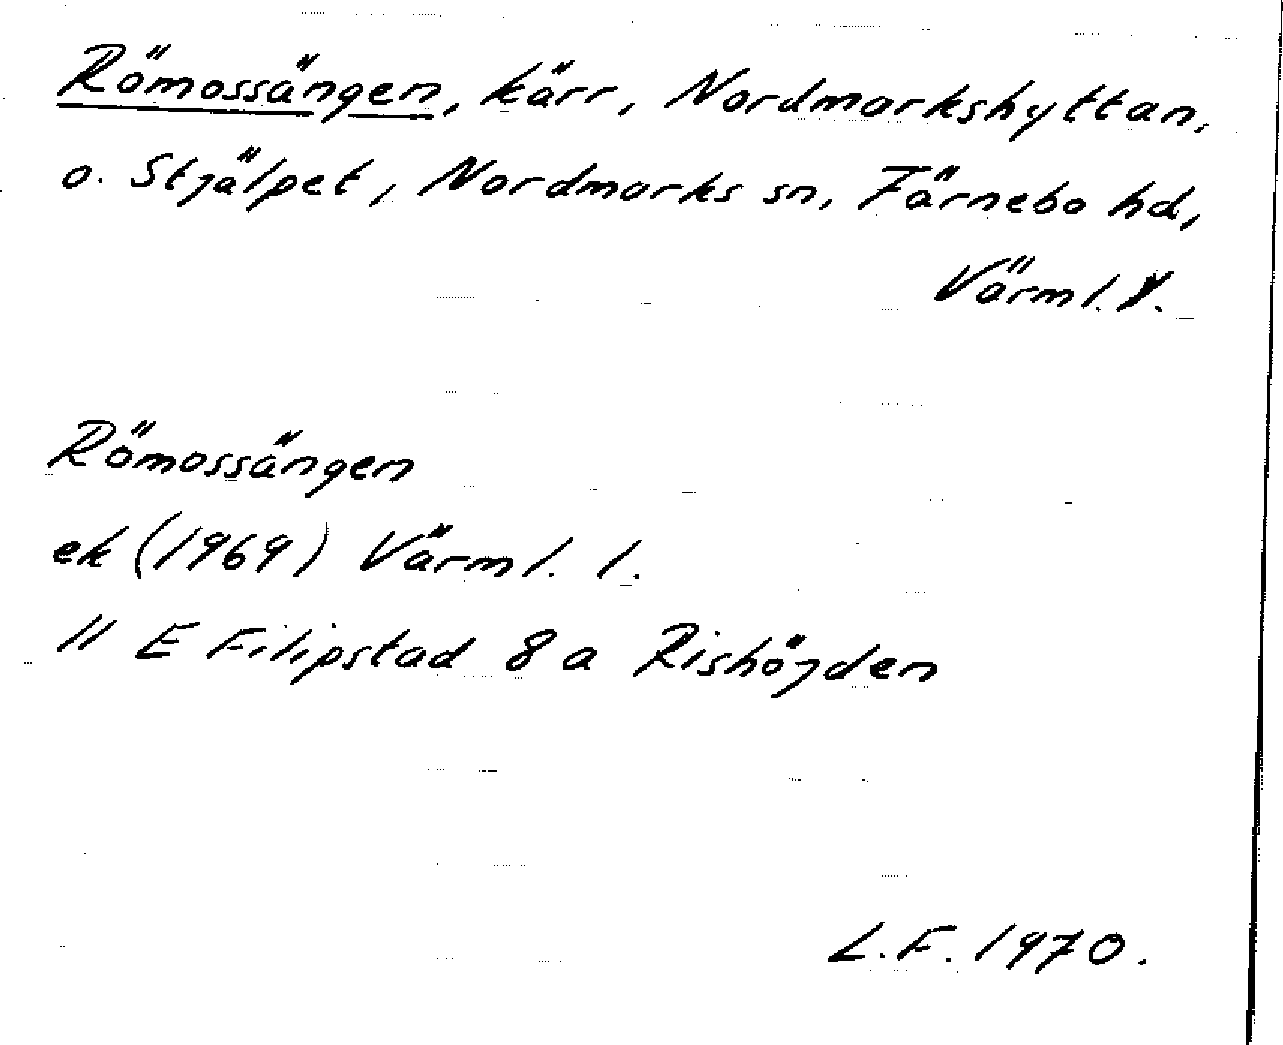 Römossängen, kärr, Nordmarkshyttan,
o. Stjälpet, Nordmarks sn, Färnebo hd,
Värml. l.
Römossängen
ek (1969) Värml. l.
11 E Filipstad 8 a Rishöjden
L.F. 1970.